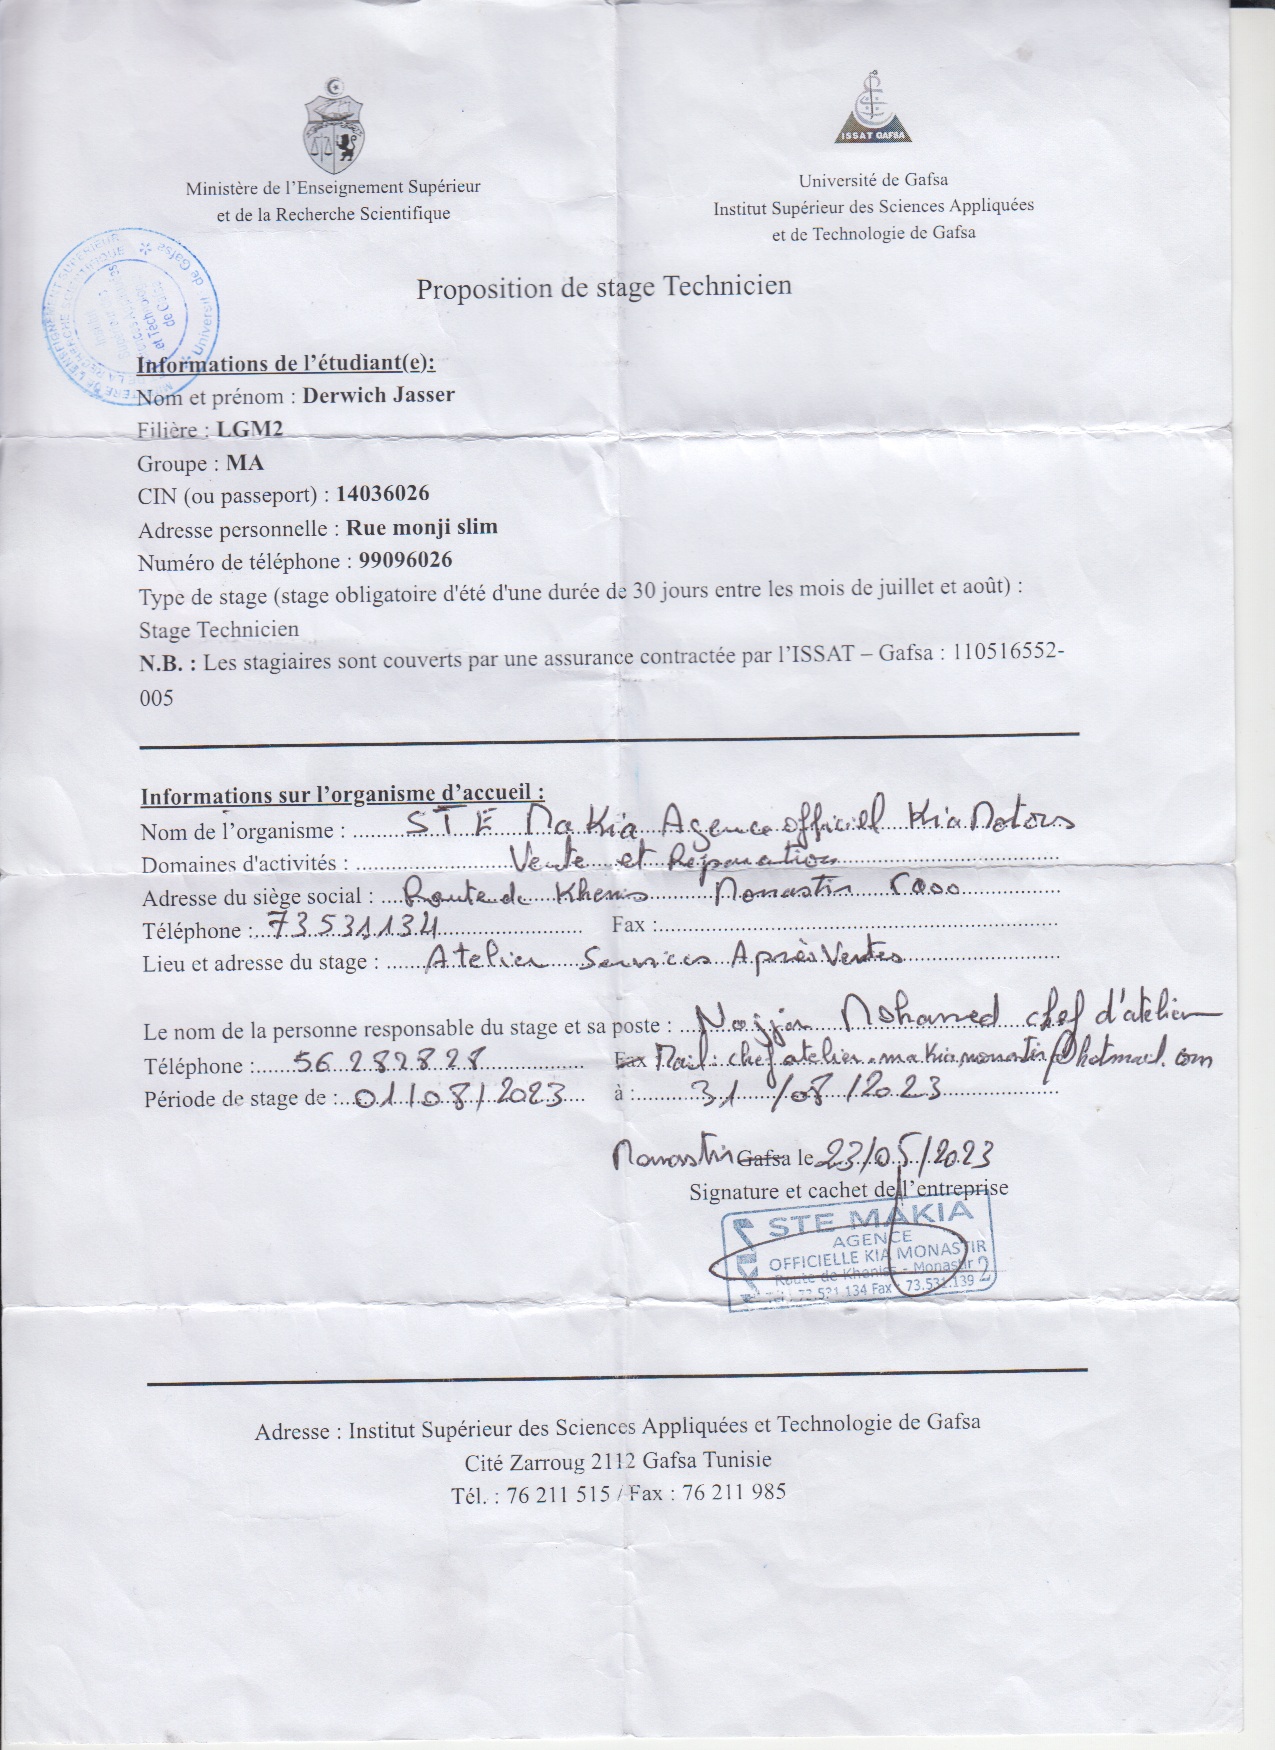 ISSAT GAFSA
Ministère de l'Enseignement Supérieur
et de la Recherche Scientifique
Université de Gafsa
Institut Supérieur des Sciences Appliquées
et de Technologie de Gafsa
Proposition de stage Technicien
Informations de l'étudiant(e):
Nom et prénom : Derwich Jasser
Filière : LGM2
Groupe : MA
CIN (ou passeport) : 14036026
Adresse personnelle : Rue monji slim
Numéro de téléphone : 99096026
Type de stage (stage obligatoire d'été d'une durée de 30 jours entre les mois de juillet et août) :
Stage Technicien
N.B. : Les stagiaires sont couverts par une assurance contractée par l'ISSAT – Gafsa : 110516552-
005
Informations sur l'organisme d'accueil :
Nom de l'organisme : STE Ma Kia Agence officiel Kia Motors
Domaines d'activités : Vente et Réparation
Adresse du siège social : Route de Khenis Monastir
Téléphone : 73531134 Fax :
Lieu et adresse du stage : Atelier Services Après Ventes
Le nom de la personne responsable du stage et sa poste : Najjar Mohamed chef d'atelier
Téléphone : 56 282828 Fax Mail : chef atelier.makia.monastir@hotmail.com
Période de stage de : 01/08/2023 à : 31/08/2023
Monastir Gafsa le 23/05/2023
Signature et cachet de l'entreprise
STE MAKIA
AGENCE
OFFICIELLE KIA MONASTIR
Route de Kheniss - Monastir
Tél : 73.531.134 Fax : 73.531.139
2
Adresse : Institut Supérieur des Sciences Appliquées et Technologie de Gafsa
Cité Zarroug 2112 Gafsa Tunisie
Tél. : 76 211 515 / Fax : 76 211 985